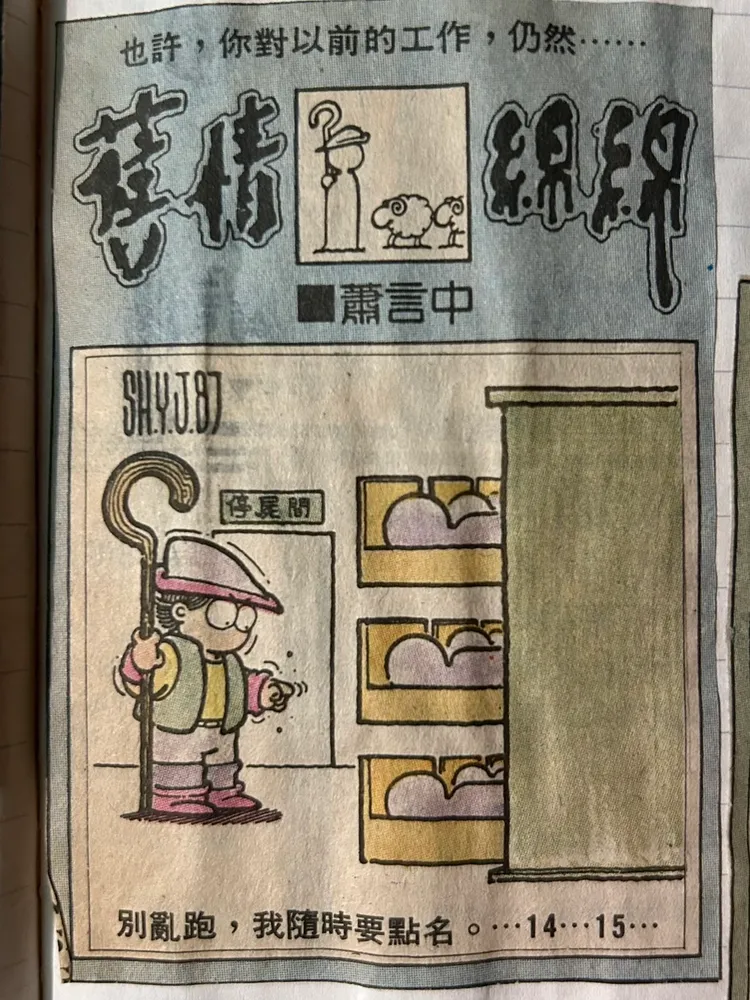 也許，你對以前的工作，仍然……
舊情綿綿
■蕭言中
SH.Y.J.87
停屍間
別亂跑，我隨時要點名。…14…15…